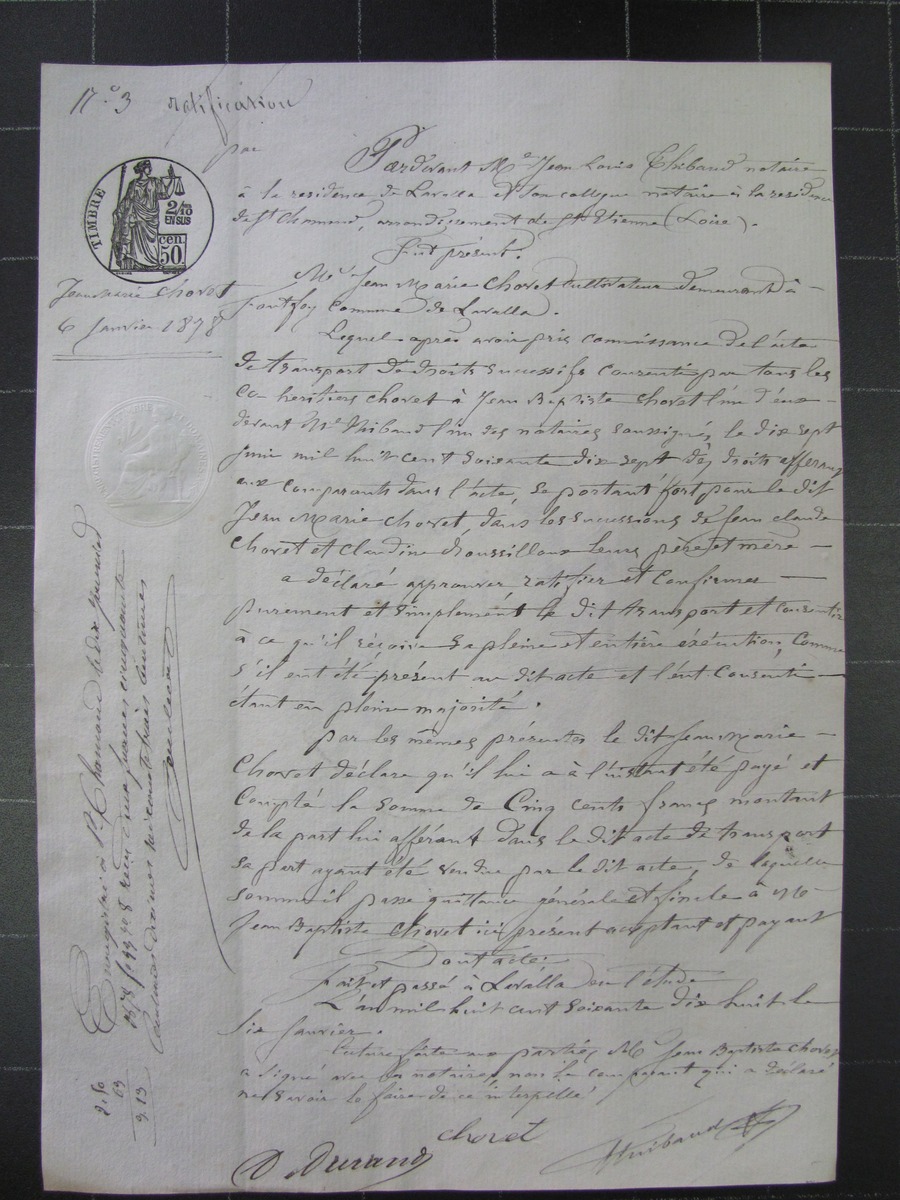 N° 3 ratification
par
TIMBRE
2/10
EN SUS
cen.
50
Jean Marie Chovet
6 Janvier 1878
Pardevant Me Jean Louis Thibaud notaire
à la residence de Lavalla et son collegue notaire à la residence
de St Chamond, arrondissement de St Etienne (Loire).
fut présent.
Mr Jean Marie Chovet cultivateur demeurant à
commune de Lavalla.
Lequel après avoir pris connaissance de l'acte
de transport de droits successifs consenti par tous les
co-heritiers chovet à Jean Baptiste chovet l'un d'eux
devant Me Thibaud l'un des notaires soussignés, le dix sept
juin mil huit cent soixante dix sept des droits afférant
aux comparants dans l'acte, se portant fort pour le dit
Jean Marie chovet, dans les sucessions de Jean claude
Chovet et claudine leurs père et mère
a déclaré approuver ratifier et confirmer
purement et simplement le dit transport et consentir
à ce qu'il reçoive sa pleine et entière éxécution, comme
s'il eut été présent au dit acte et l'eut consenti
étant en pleine majorité.
par les mêmes présentes le dit Jean Marie
Chovet déclare qu'il lui a à l'instant été payé et
compté la somme de Cinq cents francs montant
de la part lui afférant dans le dit acte de transport
sa part ayant été vendue par le dit acte, de laquelle
somme il passe quittance générale et finale à
Jean Baptiste chovet ici présent acceptant et payant
Dont acte:
fait et passé à Lavalla en l'étude
L'an mil huit cent soixante dix huit le
six Janvier.
Lecture faite aux parties Mr Jean Baptiste chovet
a signé avec les notaires, non le comparant qui a déclaré
ne savoir le faire de ce interpellé
chovet
D Durand
Thibaud
Enregistré à St Chamond le dix janvier
reçu deux francs cinquante
centimes
2.50
63